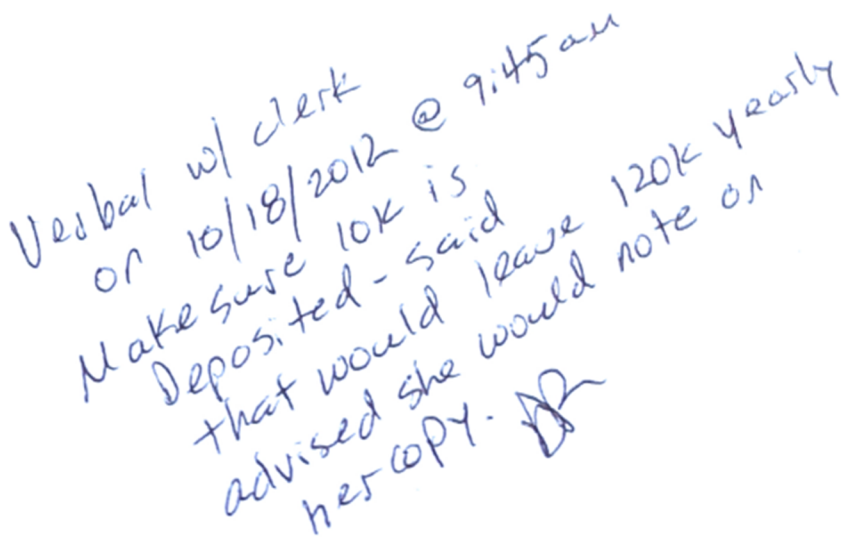 Verbal w/ clerk
on 10/18/2012 @ 9:45am
Make sure 10K is
Deposited - said
that would leave 120k yearly
advised she would note on
her copy.